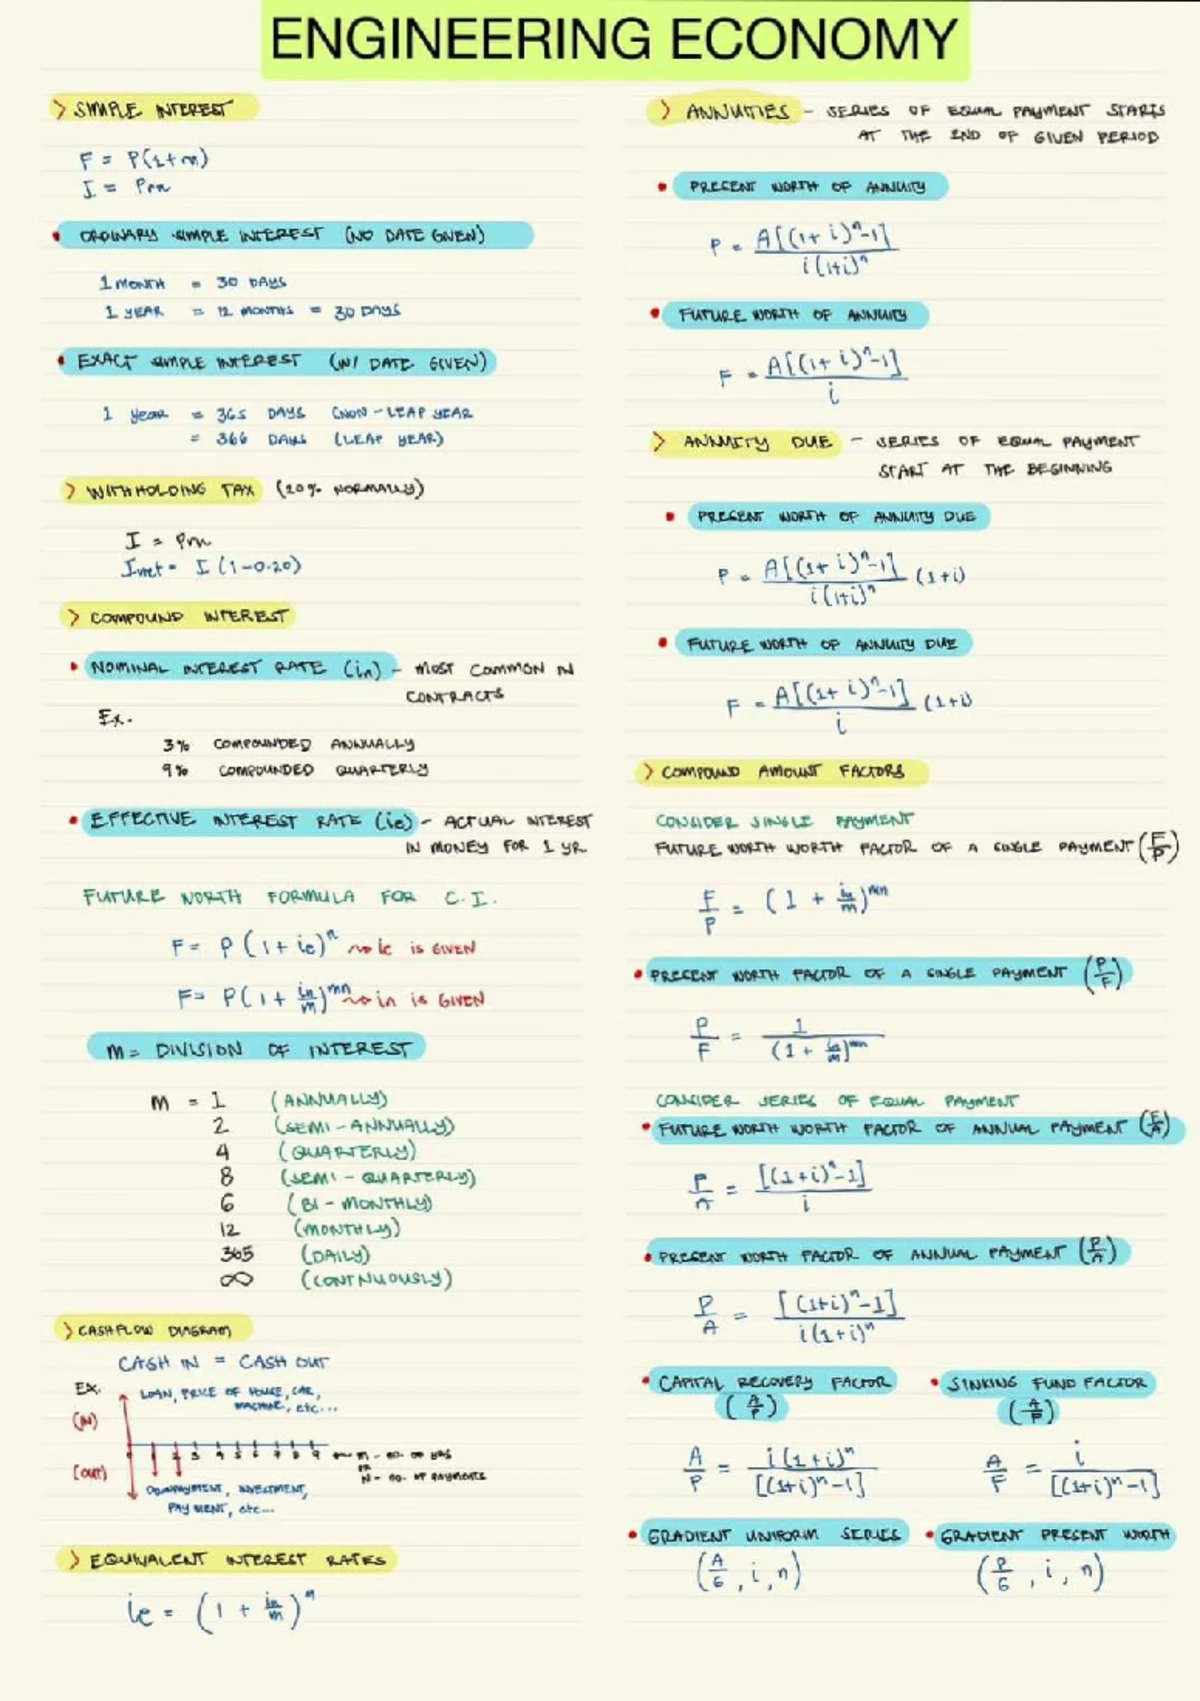 ENGINEERING ECONOMY
> SIMPLE INTEREST
F = P(1+rn)
I = Prn
• ORDINARY SIMPLE INTEREST (NO DATE GIVEN)
1 MONTH = 30 DAYS
1 YEAR = 12 MONTHS = 30 DAYS
• EXACT SIMPLE INTEREST (W/ DATE GIVEN)
1 year = 365 DAYS (NON-LEAP YEAR
= 366 DAYS (LEAP YEAR)
> WITHHOLDING TAX (20% NORMALLY)
I = Prn
Inet = I (1-0.20)
> COMPOUND INTEREST
• NOMINAL INTEREST RATE (in) - MOST COMMON IN
CONTRACTS
Ex.
3% COMPOUNDED ANNUALLY
9% COMPOUNDED QUARTERLY
• EFFECTIVE INTEREST RATE (ie) - ACTUAL INTEREST
IN MONEY FOR 1 YR
FUTURE WORTH FORMULA FOR C.I.
F = P (1 + ie)^n → ie IS GIVEN
F = P(1 + in/m)^mn → in is GIVEN
m = DIVISION OF INTEREST
m = 1 (ANNUALLY)
2 (SEMI-ANNUALLY)
4 (QUARTERLY)
8 (SEMI-QUARTERLY)
6 (BI-MONTHLY)
12 (MONTHLY)
365 (DAILY)
∞ (CONTINUOUSLY)
> CASHFLOW DIAGRAM
CASH IN = CASH OUT
EX. LOAN, PRICE OF HOUSE, CAR,
MACHINE, etc...
(IN)
3 4 5 6 7 8 9 n - no. OF YRS
OR
(OUT) N - no. OF PAYMENTS
DOWNPAYMENT, INVESTMENT,
PAYMENT, etc...
> EQUIVALENT INTEREST RATES
ie = (1 + in/m)^m
> ANNUITIES - SERIES OF EQUAL PAYMENT STARTS
AT THE END OF GIVEN PERIOD
• PRESENT WORTH OF ANNUITY
P = A[(1+i)^n-1] / i(1+i)^n
• FUTURE WORTH OF ANNUITY
F = A[(1+i)^n-1] / i
> ANNUITY DUE - SERIES OF EQUAL PAYMENT
START AT THE BEGINNING
• PRESENT WORTH OF ANNUITY DUE
P = A[(1+i)^n-1] / i(1+i)^n (1+i)
• FUTURE WORTH OF ANNUITY DUE
F = A[(1+i)^n-1] / i (1+i)
> COMPOUND AMOUNT FACTORS
CONSIDER SINGLE PAYMENT
FUTURE WORTH WORTH FACTOR OF A SINGLE PAYMENT (F/P)
F/P = (1 + in/m)^mn
• PRESENT WORTH FACTOR OF A SINGLE PAYMENT (P/F)
P/F = 1 / (1 + in/m)^mn
CONSIDER SERIES OF EQUAL PAYMENT
• FUTURE WORTH WORTH FACTOR OF ANNUAL PAYMENT (F/A)
F/A = [(1+i)^n-1] / i
• PRESENT WORTH FACTOR OF ANNUAL PAYMENT (P/A)
P/A = [(1+i)^n-1] / i(1+i)^n
• CAPITAL RECOVERY FACTOR
(A/P)
A/P = i(1+i)^n / [(1+i)^n-1]
• SINKING FUND FACTOR
(A/F)
A/F = i / [(1+i)^n-1]
• GRADIENT UNIFORM SERIES
(A/G, i, n)
• GRADIENT PRESENT WORTH
(P/G, i, n)